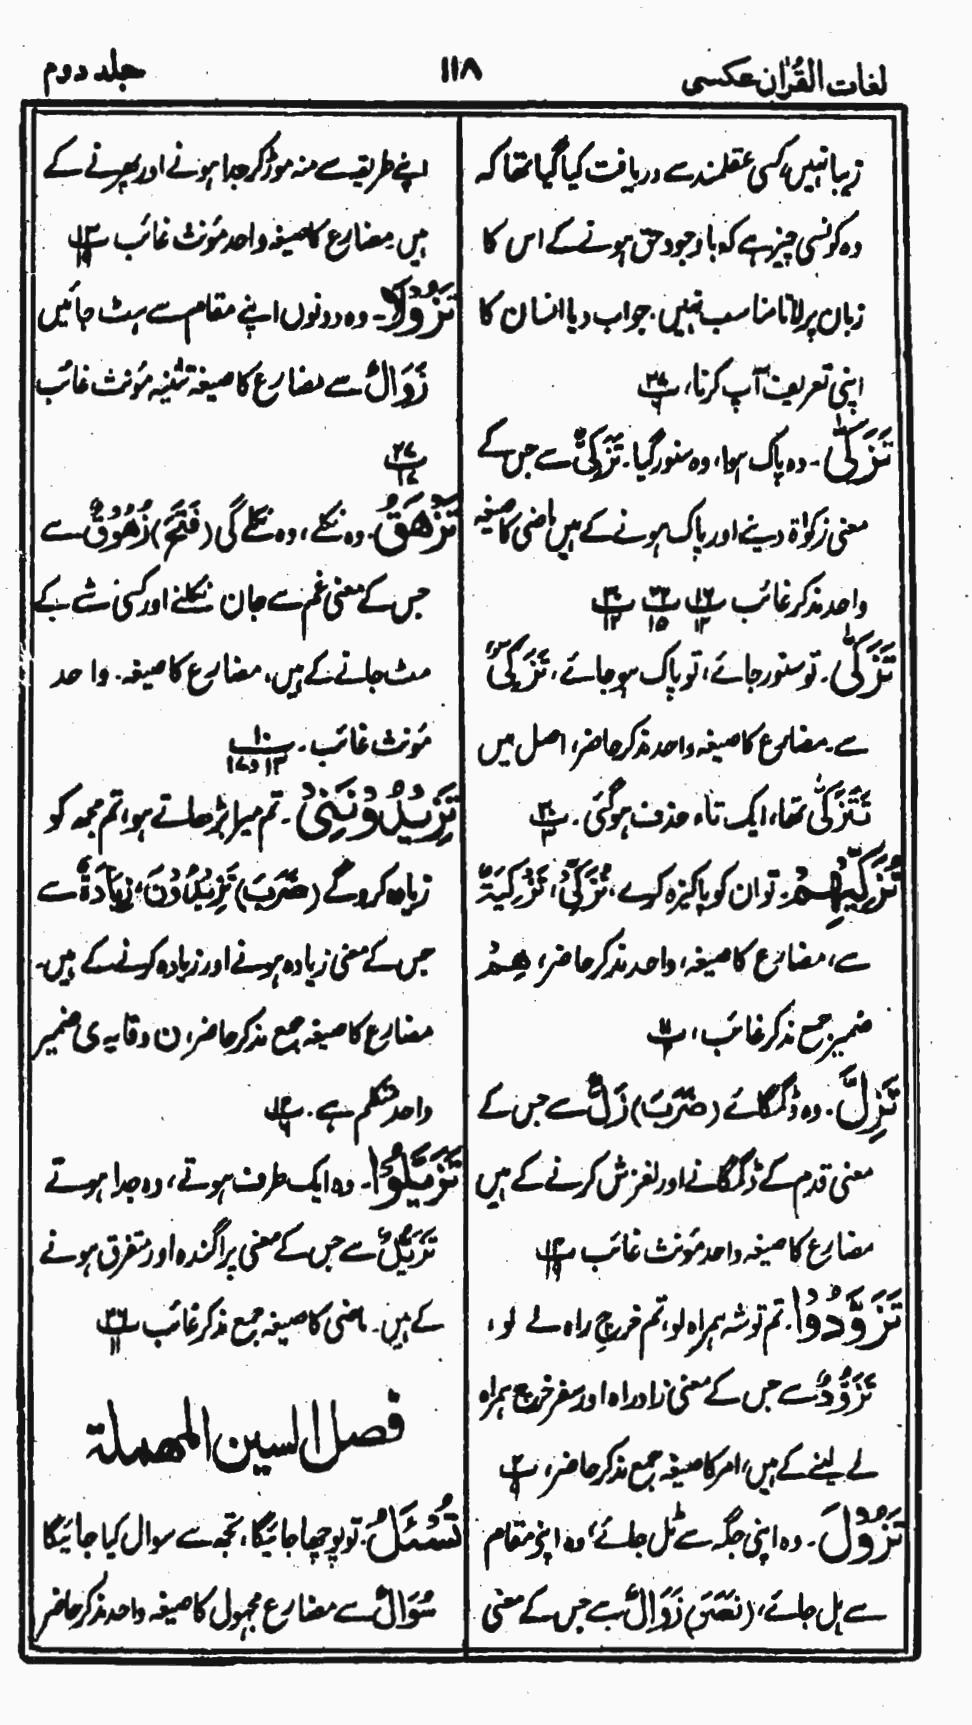 لغات القرآن عکسی
۱۱۸
جلد دوم
زیبا نہیں، کسی عقلمند سے دریافت کیا گیا تھا کہ
وہ کونسی چیز ہے کہ باوجود حق ہونے کے اس کا
زبان پر لانا مناسب نہیں۔ جواب دیا انسان کا
اپنی تعریف آپ کرنا،
تَزَكّٰى۔ وہ پاک ہوا، وہ سنور گیا۔ تَزَكِّیٌ سے جس کے
معنی زکوٰۃ دینے اور پاک ہونے کے ہیں ماضی کا صیغہ
واحد مذکر غائب
تَزَكّٰى۔ تو سنور جائے، تو پاک ہو جائے، تَزَكِّیٌ
سے۔ مضارع کا صیغہ واحد مذکر حاضر، اصل میں
تَتَزَكّٰى تھا، ایک تاء حذف ہوگئی۔
تُزَكِّيْهِمْ۔ تو ان کو پاکیزہ کرے، تُزَكِّیْ، تَزْكِيَةٌ
سے، مضارع کا صیغہ، واحد مذکر حاضر، هِمْ
ضمیر جمع مذکر غائب،
تَزِلَّ۔ وہ ڈگمگائے (ضَرَبَ) زَلٌّ سے جس کے
معنی قدم کے ڈگمگانے اور لغزش کرنے کے ہیں
مضارع کا صیغہ واحد مؤنث غائب
تَزَوَّدُوْا۔ تم توشہ ہمراہ لو، تم خرچ راہ لے لو،
تَزَوُّدٌ سے جس کے معنی زاد راہ اور سفر خرچ ہمراہ
لے لینے کے ہیں، امر کا صیغہ جمع مذکر حاضر،
تَزُوْلَ۔ وہ اپنی جگہ سے ٹل جائے، وہ اپنے مقام
سے ہل جائے، (نَصَرَ) زَوَالٌ سے جس کے معنی
اپنے طریقے سے منہ موڑ کر جدا ہونے اور پھرنے کے
ہیں۔ مضارع کا صیغہ واحد مؤنث غائب
تَزُوْلَا۔ وہ دونوں اپنے مقام سے ہٹ جائیں
زَوَالٌ سے مضارع کا صیغہ تثنیہ مؤنث غائب
تَزْهَقَ۔ وہ نکلے، وہ نکلے گی (فَتَحَ) زُهُوْقٌ سے
جس کے معنی غم سے جان نکلنے اور کسی شے کے
مٹ جانے کے ہیں، مضارع کا صیغہ۔ واحد
مؤنث غائب۔
تَزِيْدُوْنَنِيْ۔ تم میرا بڑھاتے ہو، تم مجھ کو
زیادہ کروگے (ضَرَبَ) تَزِيْدُوْنَ، زِيَادَةٌ سے
جس کے معنی زیادہ ہونے اور زیادہ کرنے کے ہیں۔
مضارع کا صیغہ جمع مذکر حاضر، ن وقایہ ی ضمیر
واحد متکلم ہے۔
تَزَيَّلُوْا۔ وہ ایک طرف ہوتے، وہ جدا ہوتے
تَزَيُّلٌ سے جس کے معنی پراگندہ اور متفرق ہونے
کے ہیں۔ ماضی کا صیغہ جمع مذکر غائب
فصل السین المھملة
تُسْئَلُ۔ تو پوچھا جائیگا، تجھ سے سوال کیا جائیگا
سُؤَالٌ سے مضارع مجہول کا صیغہ واحد مذکر حاضر